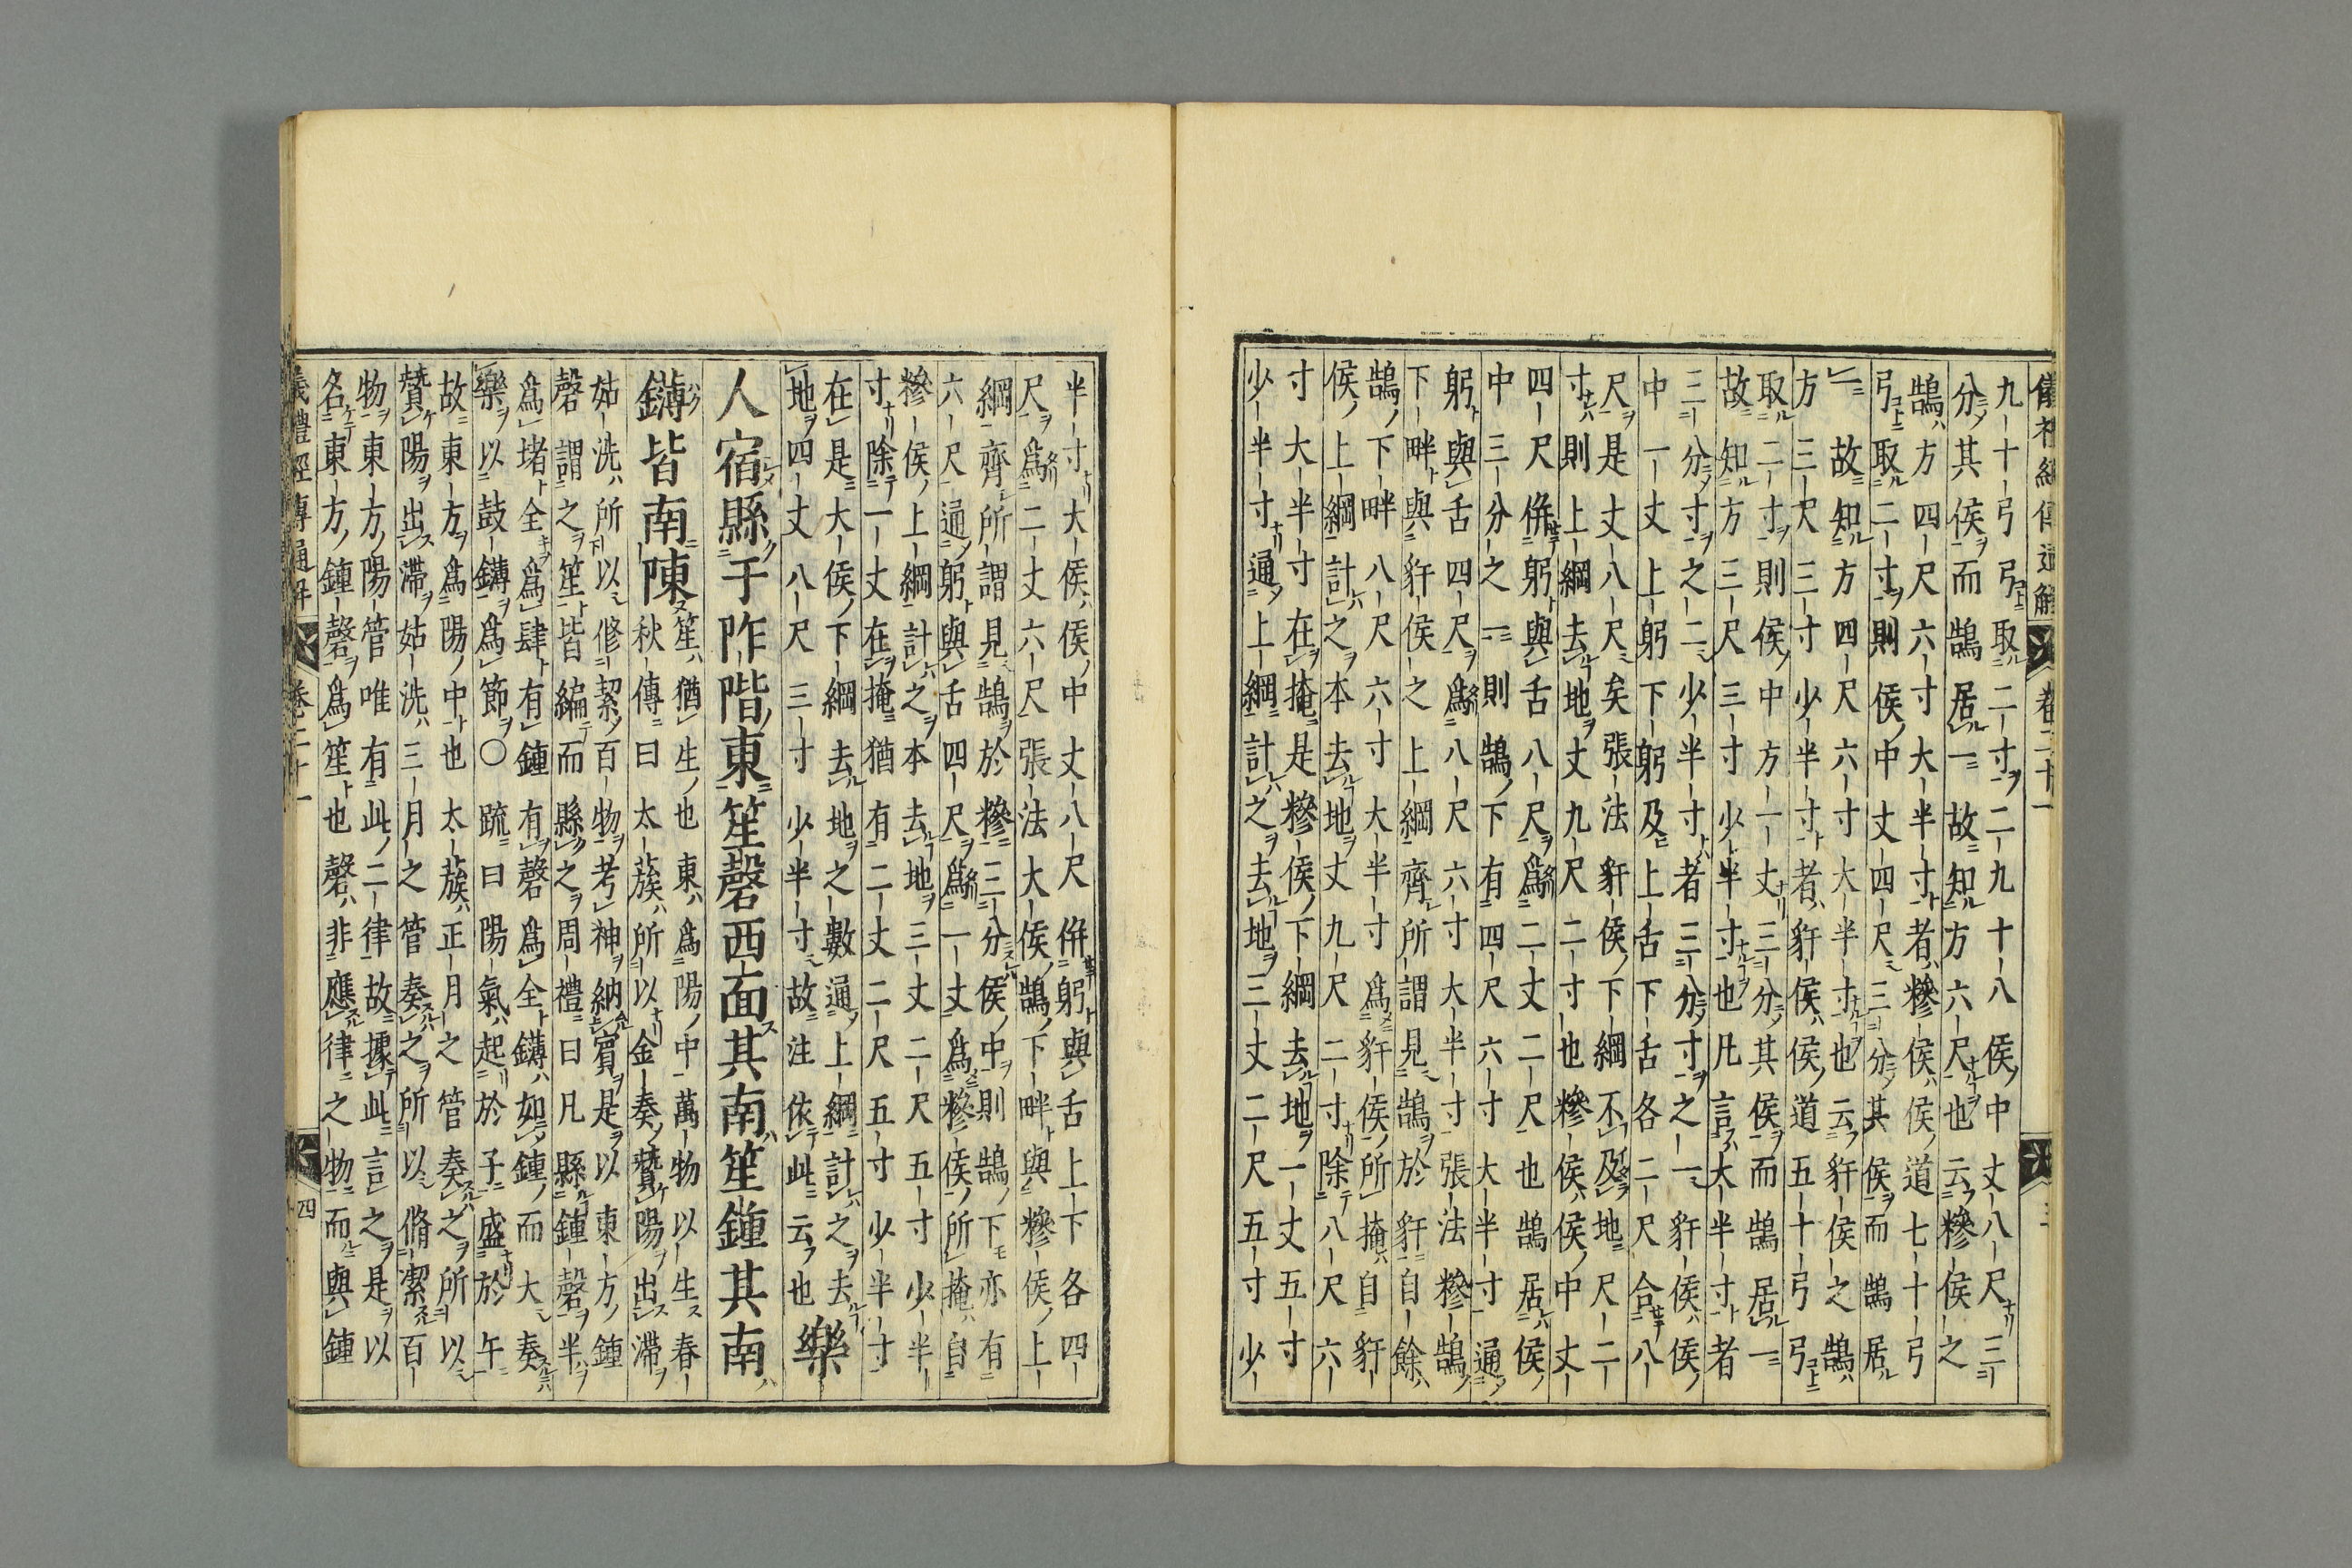 儀禮經傳通解 卷二十一 三
九十弓弓取二寸二九十八侯中丈八尺三
分其侯而鵠居一故知方六尺也云糝侯之
鵠方四尺六寸大半寸者糝侯侯道七十弓
弓取二寸則侯中丈四尺三分其侯而鵠居
一故知方四尺六寸大半寸也云豻侯之鵠
方三尺三寸少半寸者豻侯侯道五十弓弓
取二寸則侯中方一丈三分其侯而鵠居一
故知方三尺三寸少半寸也凡言大半寸者
三分寸之二少半寸者三分寸之一豻侯侯
中一丈上躬下躬及上舌下舌各二尺合八
尺是丈八尺矣張法豻侯下綱不及地尺二
寸則上綱去地丈九尺二寸也糝侯侯中丈
四尺併躬與舌八尺爲二丈二尺也鵠居侯
中三分之一則鵠下有四尺六寸大半寸通
躬與舌四尺爲八尺六寸大半寸張法糝鵠
下畔與豻侯之上綱齊所謂見鵠於豻自餘
鵠下畔八尺六寸大半寸爲豻侯所掩自豻
侯上綱計之本去地丈九尺二寸除八尺六
寸大半寸在掩是糝侯下綱去地一丈五寸
少半寸通上綱計之去地三丈二尺五寸少
半寸大侯侯中丈八尺併躬與舌上下各四
尺爲二丈六尺張法大侯鵠下畔與糝侯上
綱齊所謂見鵠於糝三分侯中則鵠下亦有
六尺通躬與舌四尺爲一丈爲糝侯所掩自
糝侯上綱計之本去地三丈二尺五寸少半
寸除一丈在掩猶有二丈二尺五寸少半寸
在是大侯下綱去地之數通上綱計之去
地四丈八尺三寸少半寸故注依此云也
樂
人宿縣于阼階東笙磬西面其南笙鐘其南
鑮皆南陳
笙猶生也東爲陽中萬物以生春
秋傳曰太蔟所以金奏贊陽出滯
姑洗所以修絜百物考神納賓是以東方鐘
磬謂之笙皆編而縣之周禮曰凡縣鐘磬半
爲堵全爲肆有鐘有磬爲全鑮如鐘而大奏
樂以鼓鑮爲節○疏曰陽氣起於子盛於午
故東方爲陽中也太蔟正月之管奏之所以
贊陽出滯姑洗三月之管奏之所以脩潔百
物東方陽管唯有此二律故據此言之是以
名東方鐘磬爲笙也磬非應律之物而與鐘
儀禮經傳通解 卷二十一 四